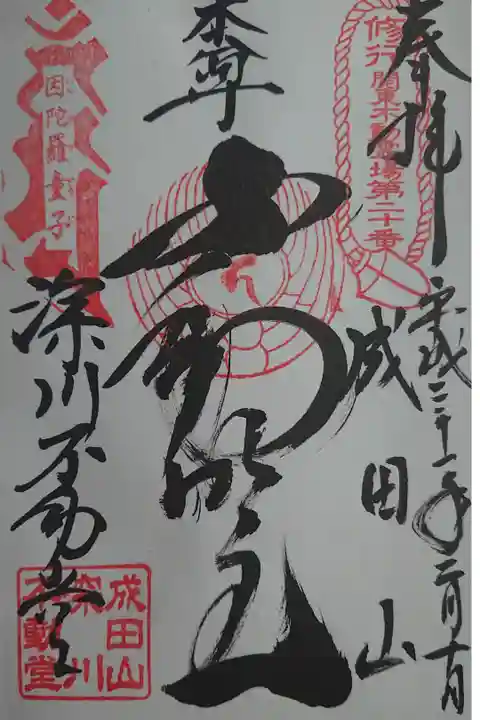 奉拝
修行 関東不動霊場第二十番
平成三十一年二月十日
成田山
本尊
不動明王
因陀羅童子
深川不動堂
成田山
深川
不動堂